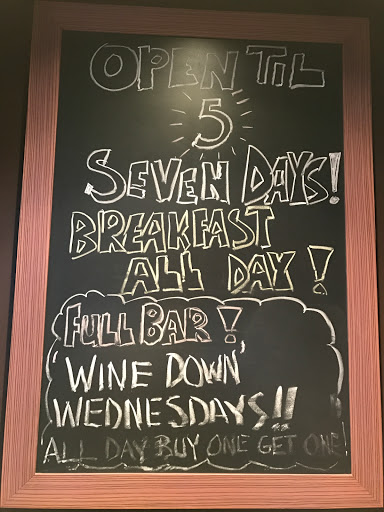 OPEN TIL
5
SEVEN DAYS!
BREAKFAST
ALL DAY!
FULL BAR!
'WINE DOWN'
WEDNESDAYS!!
ALL DAY BUY ONE GET ONE